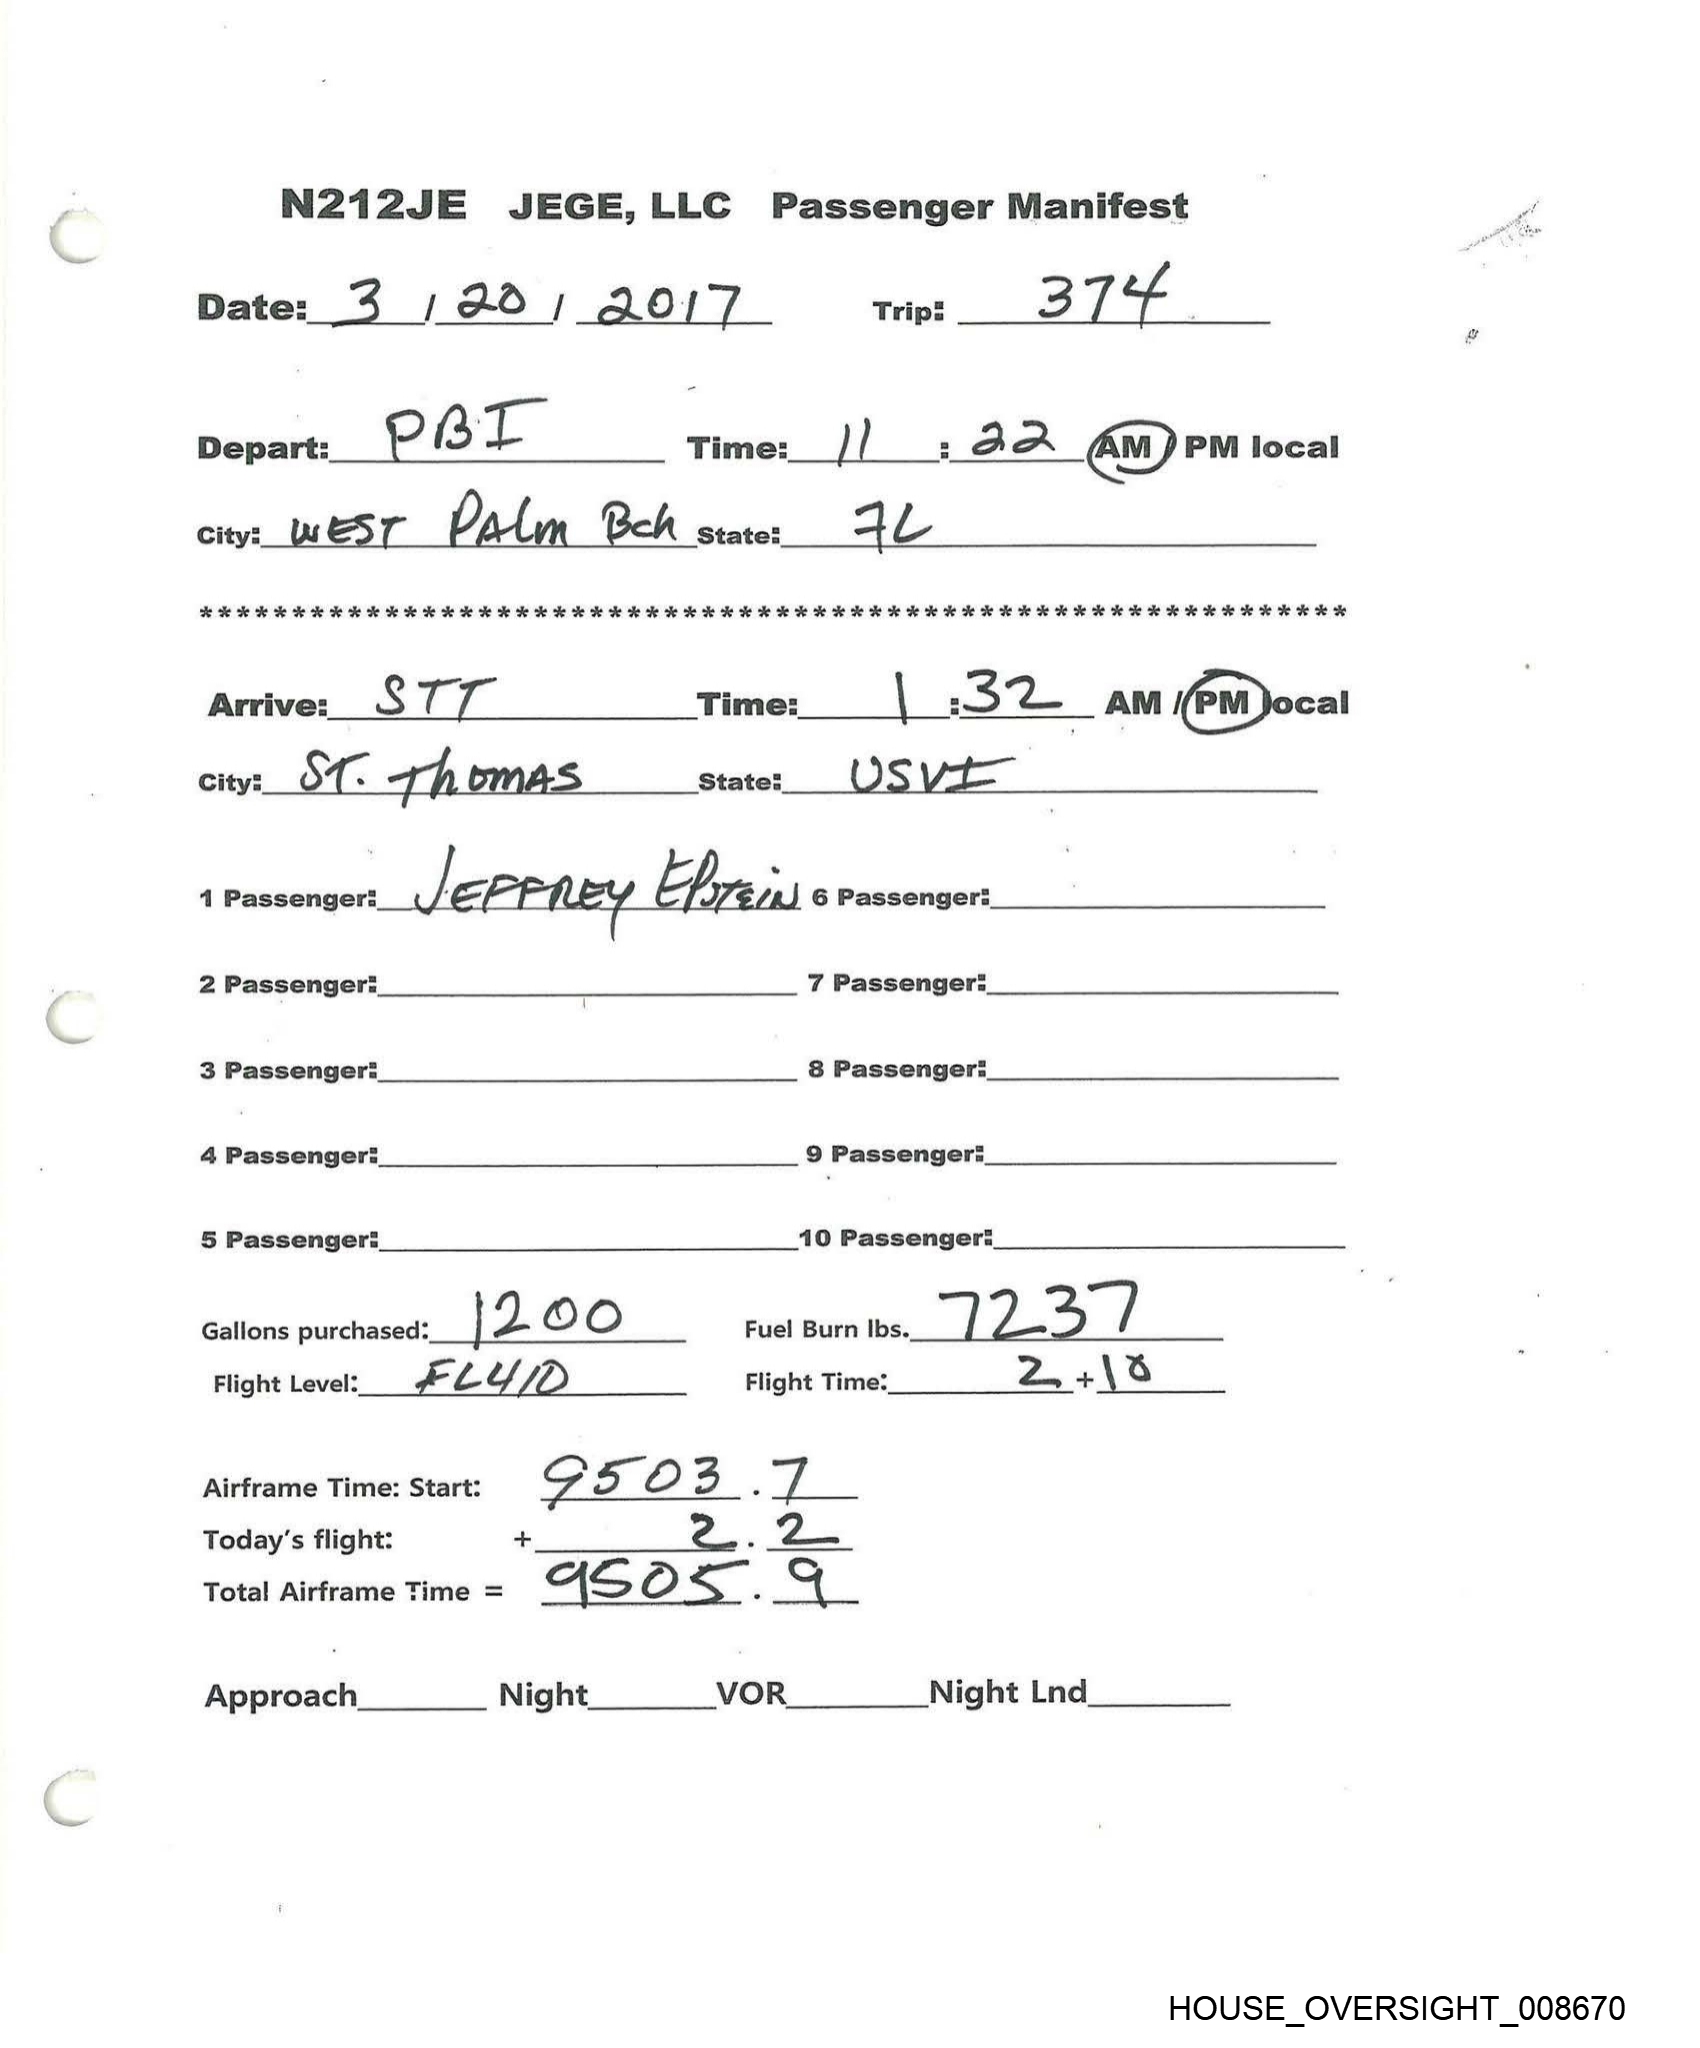 N212JE JEGE, LLC Passenger Manifest
Date: 3 / 20 / 2017 Trip: 374
Depart: PBI Time: 11 : 22 AM / PM local
City: WEST PALM Bch State: FL
**************************************************************
Arrive: STT Time: 1 : 32 AM / PM local
City: ST. THOMAS State: USVI
1 Passenger: JEFFREY EPSTEIN 6 Passenger:
2 Passenger: 7 Passenger:
3 Passenger: 8 Passenger:
4 Passenger: 9 Passenger:
5 Passenger: 10 Passenger:
Gallons purchased: 1200 Fuel Burn lbs. 7237
Flight Level: FL410 Flight Time: 2 + 10
Airframe Time: Start: 9503 . 7
Today's flight: + 2 . 2
Total Airframe Time = 9505 . 9
Approach Night VOR Night Lnd
HOUSE_OVERSIGHT_008670